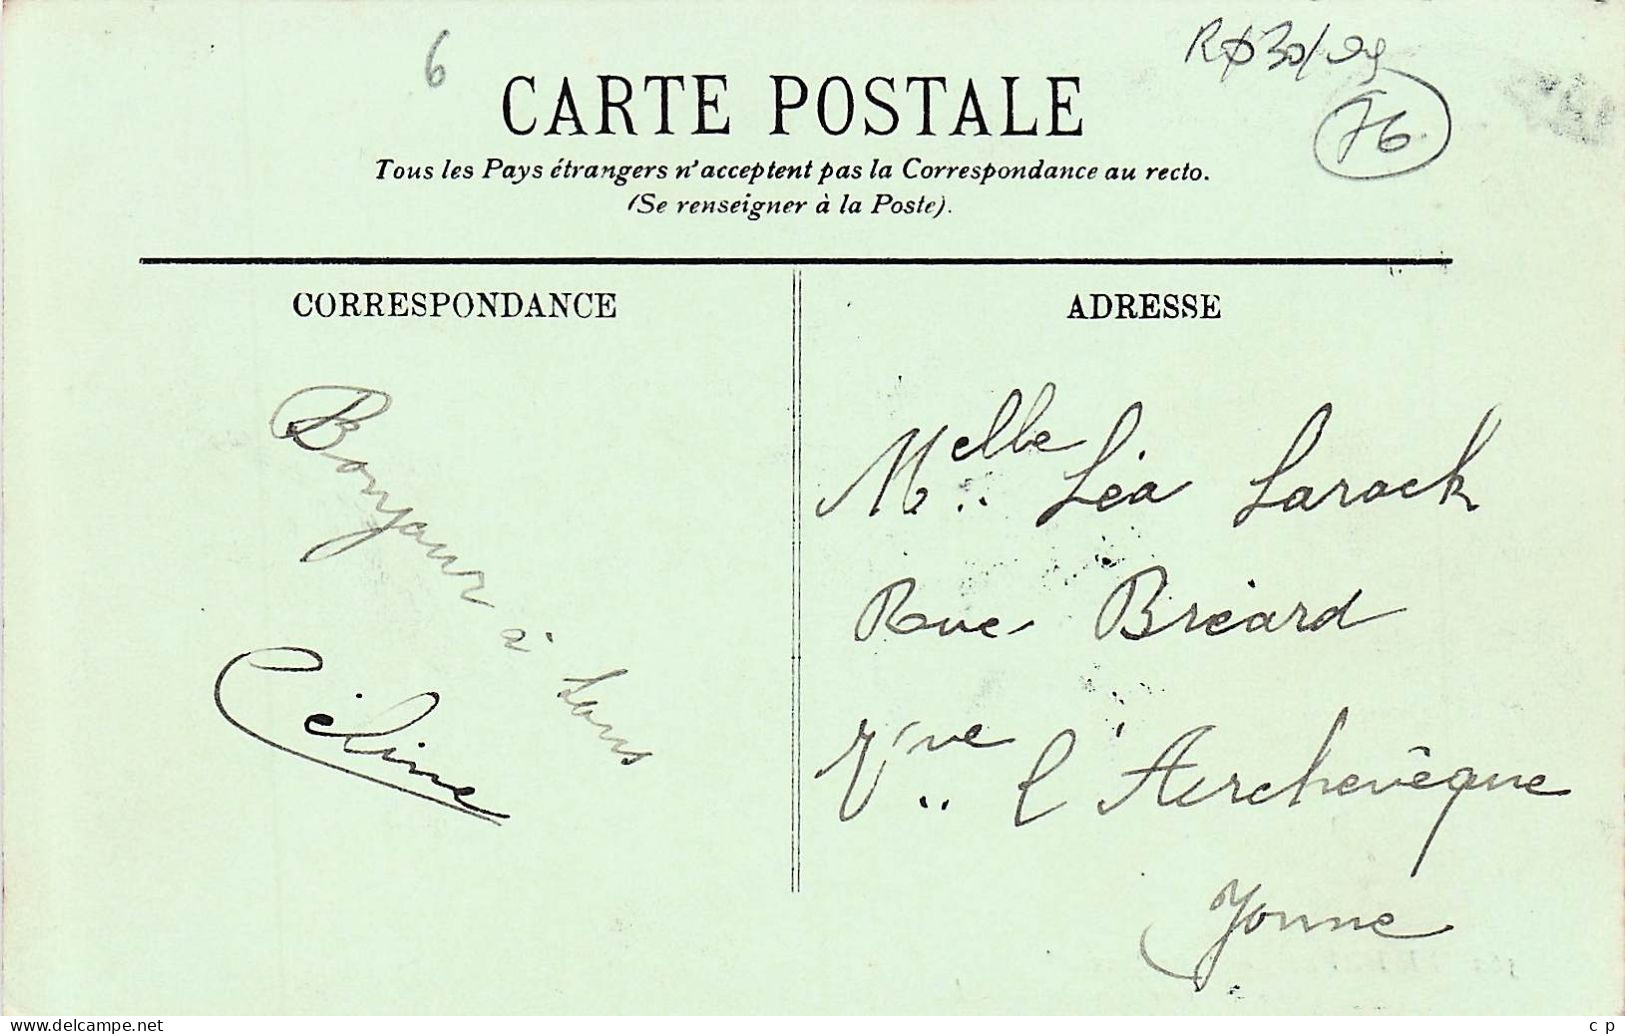 6
76
CARTE POSTALE
Tous les Pays étrangers n'acceptent pas la Correspondance au recto.
(Se renseigner à la Poste).
CORRESPONDANCE
Bonjour à tous
Céline
ADRESSE
Melle Léa Larock
Rue Bréard
V've l'Archevêque
Yonne
www.delcampe.net
c p